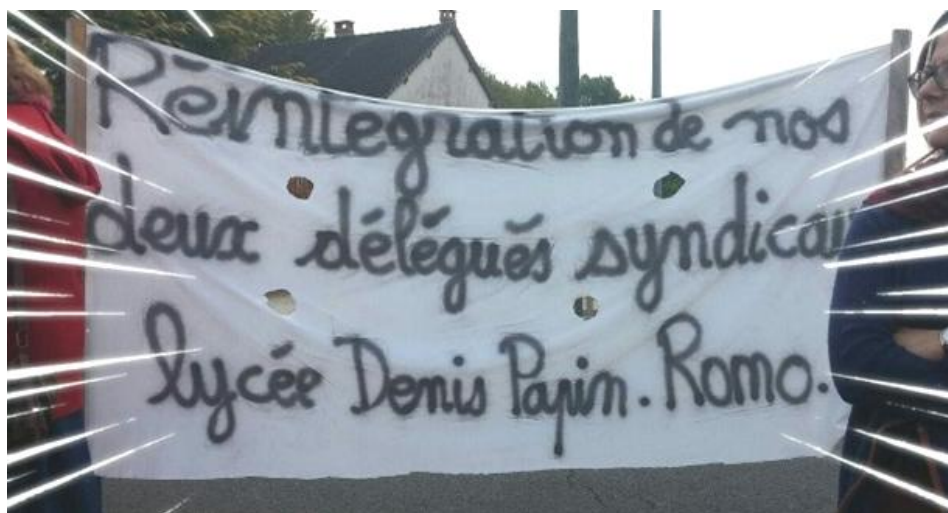 Réintégration de nos
deux délégués syndicau
lycée Denis Papin. Romo.